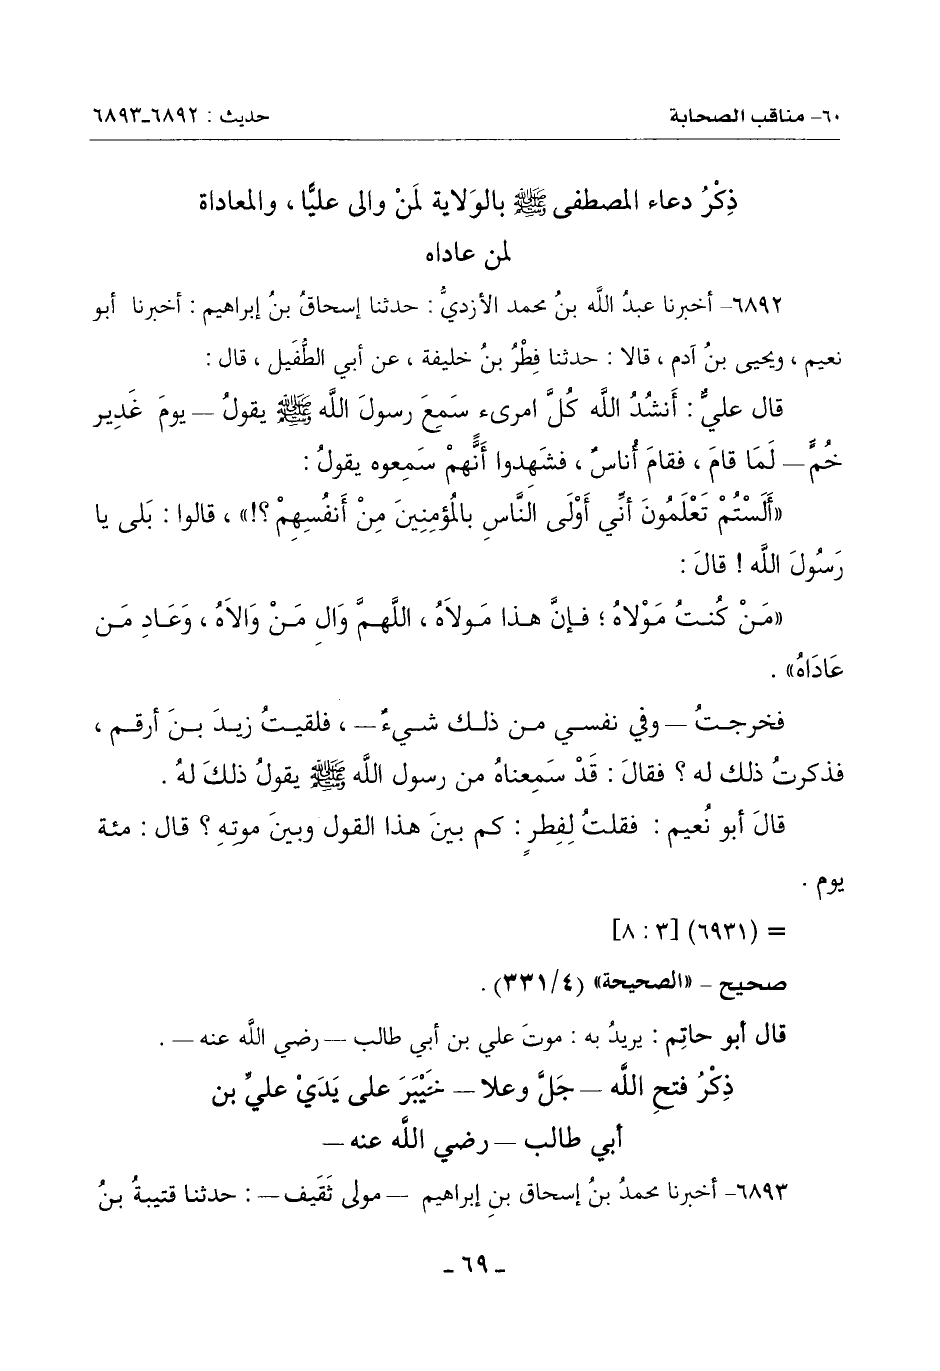 ٦٠- مناقب الصحابة حديث : ٦٨٩٢ـ٦٨٩٣
ذِكْرُ دعاء المصطفى ﷺ بالوَلاية لمَنْ والى عليًّا ، والمعاداة
لمن عاداه
٦٨٩٢- أخبرنا عبدُ اللَّه بنُ محمد الأزديُّ : حدثنا إسحاقُ بنُ إبراهيم : أخبرنا أبو
نعيم ، ويحيى بنُ آدم ، قالا : حدثنا فِطْرُ بنُ خليفة ، عن أبي الطُّفَيل ، قال :
قال عليٌّ : أَنشُدُ اللَّه كُلَّ امرىء سَمِعَ رسولَ اللَّه ﷺ يقولُ — يومَ غَدِير
خُمٍّ — لَمَا قامَ ، فقامَ أُناسٌ ، فشَهِدوا أَنَّهمْ سَمِعوه يقولُ :
«أَلَسْتُمْ تَعْلَمُونَ أنِّي أَوْلَى النَّاسِ بالْمُؤمِنِينَ مِنْ أَنفُسِهِمْ ؟!» ، قالوا : بَلى يا
رَسُولَ اللَّه ! قالَ :
«مَنْ كُنتُ مَوْلاهُ ؛ فإنَّ هذا مَولاَهُ ، اللهمَّ وَالِ مَنْ وَالاَهُ ، وَعَادِ مَن
عَادَاهُ» .
فخرجتُ — وفي نفسي من ذلك شيءٌ — ، فلقيتُ زيدَ بنَ أرقم ،
فذكرتُ ذلك له ؟ فقالَ : قَدْ سَمِعناهُ من رسول اللَّه ﷺ يقولُ ذلكَ لهُ .
قالَ أبو نُعيم : فقلتُ لِفِطرٍ : كم بينَ هذا القول وبينَ موتِهِ ؟ قال : مئة
يوم .
= (٦٩٣١) [٣ : ٨]
صحيح - «الصحيحة» (٤/ ٣٣١) .
قال أبو حاتِم : يريدُ به : موتَ علي بن أبي طالب — رضي اللَّه عنه — .
ذِكْرُ فتحِ اللَّه — جَلَّ وعلا — خَيْبَرَ على يَدَيْ عليِّ بن
أبي طالب — رضي اللَّه عنه —
٦٨٩٣- أخبرنا محمدُ بنُ إسحاق بنِ إبراهيم — مولى ثَقَيف — : حدثنا قتيبةُ بنُ
ـ ٦٩ ـ